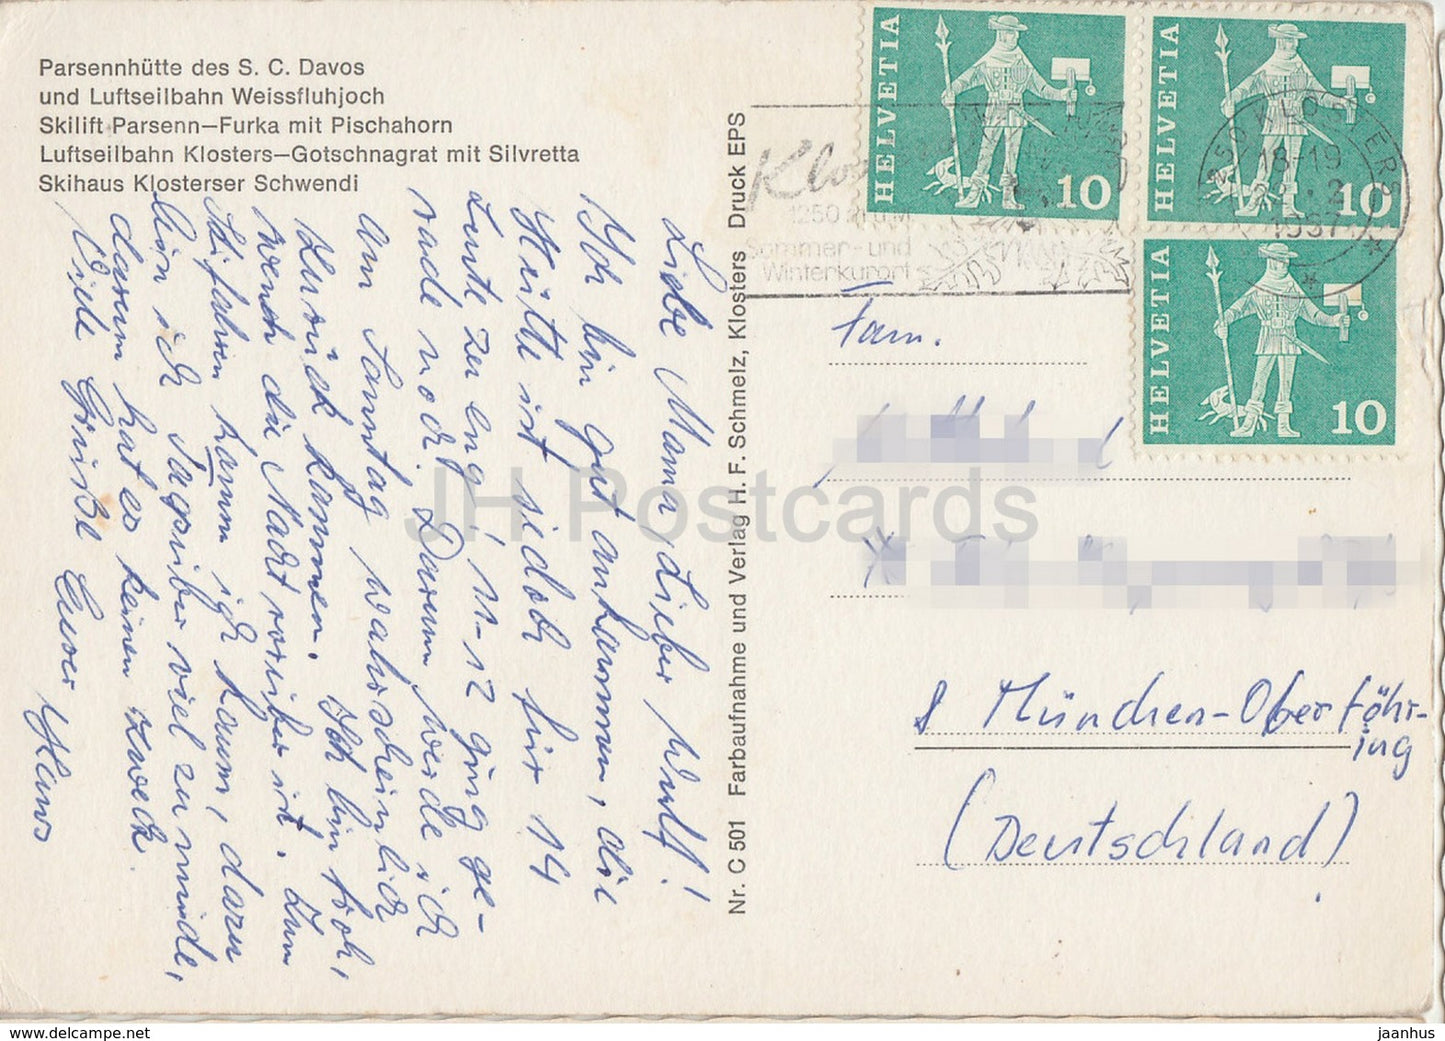 Parsennhütte des S. C. Davos
und Luftseilbahn Weissfluhjoch
Skilift Parsenn–Furka mit Pischahorn
Luftseilbahn Klosters–Gotschnagrat mit Silvretta
Skihaus Klosterser Schwendi
Liebe Mama, Lieber Wulf!
Ich bin gut ankommen, die
Hütte ist jedoch für 14
Leute zu eng, 11-12 ging ge-
rade noch. Darum werde ich
am Sonntag wahrscheinlich
zurück kommen. Ich bin froh,
wenn die Nacht vorüber ist. Zum
Skifahren kamm ich kaum, dazu
bin ich tagsüber viel zu müde,
darum hat es keinen Zweck.
Viele Grüße Euer Hans
Nr. C 501 Farbaufnahme und Verlag H. F. Schmelz, Klosters Druck EPS
HELVETIA
10
HELVETIA
10
HELVETIA
10
Klos
1250 m ü. M.
Sommer- und
Winterkurort
7250 KLOSTERS
18-19
22.2
1967
Fam.
8 München-Oberföhr-
ing
(Deutschland)
JH Postcards
www.delcampe.net
jaanhus